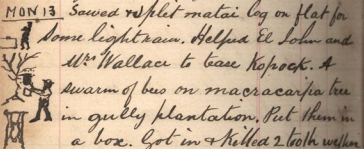 MON 13 Sawed & split matai log on flat for
some light rain. Helped El John and
Mrs Wallace to tease Kapock. A
swarm of bees on macracarpa tree
in gully plantation. Put them in
a box. Got in & killed 2 tooth wether